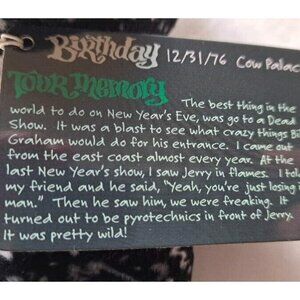 Birthday 12/31/76 Cow Palac
Tour Memory
The best thing in the
world to do on New Year's Eve, was go to a Dead
Show. It was a blast to see what crazy things Bi
Graham would do for his entrance. I came out
from the east coast almost every year. At the
last New Year's show, I saw Jerry in flames. I tol
my friend and he said, "Yeah, you're just losing i
man." Then he saw him, we were freaking. It
turned out to be pyrotechnics in front of Jerry.
It was pretty wild!